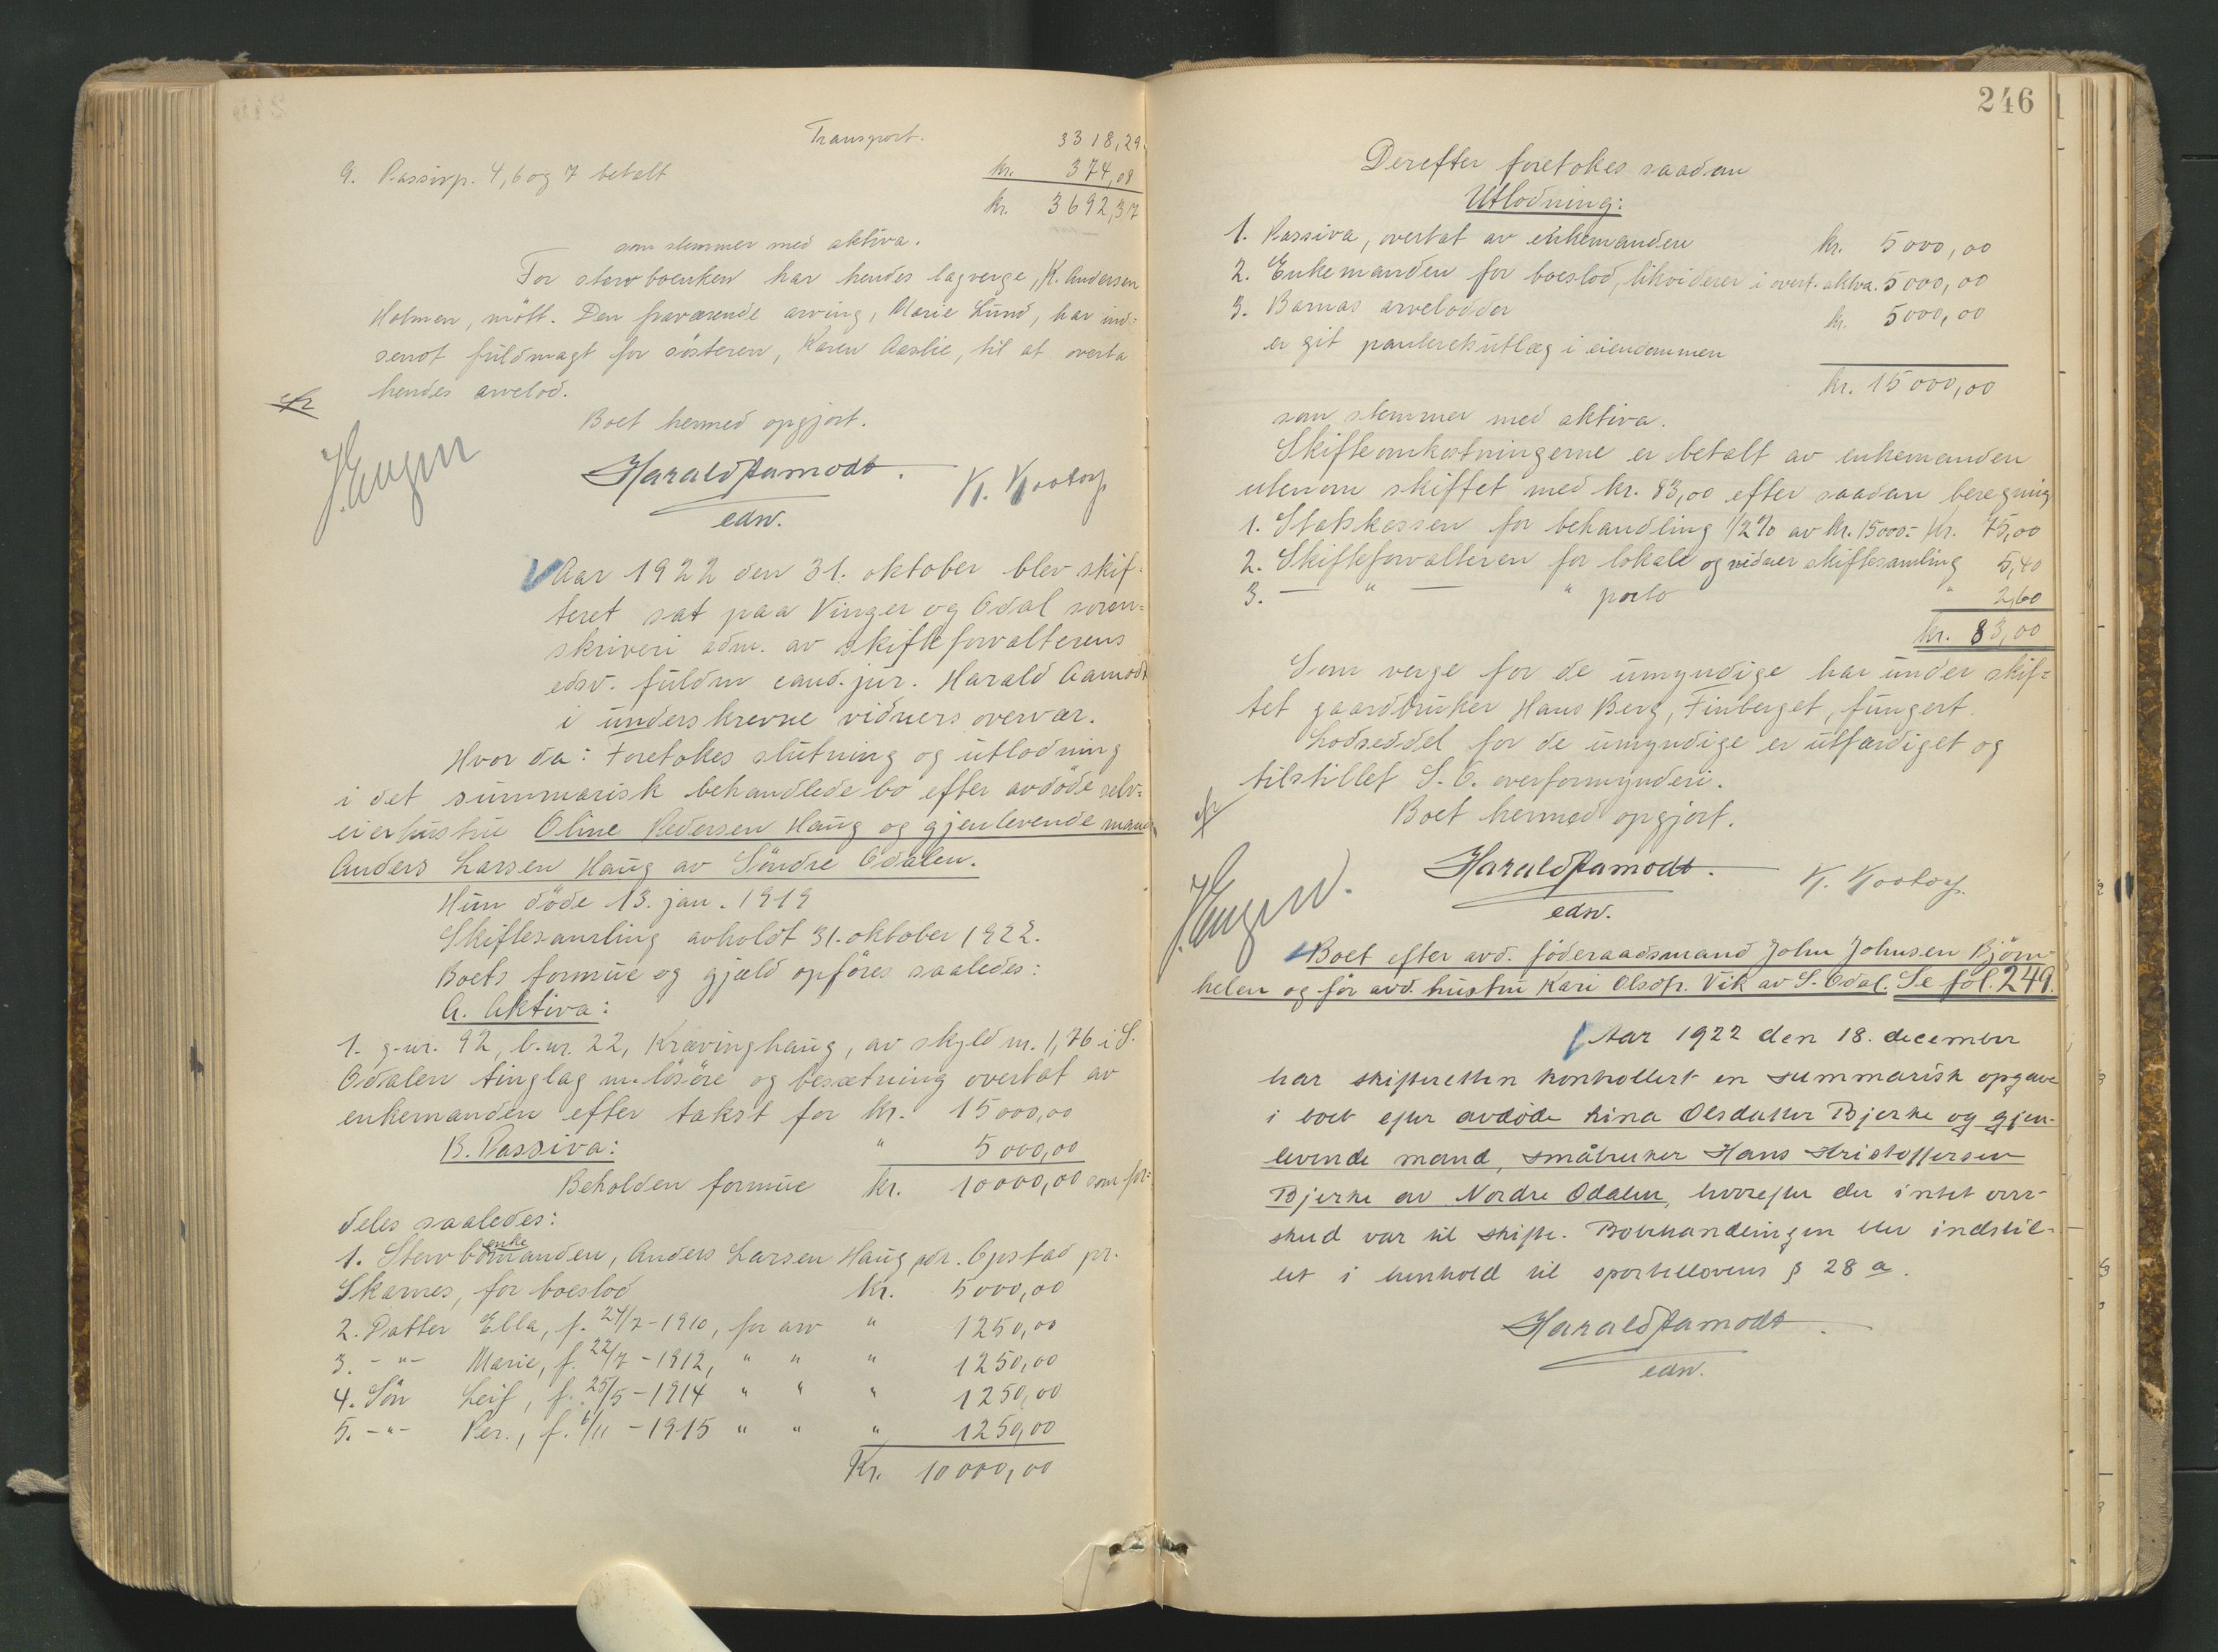 Transport. 3318,29
9. Passivp. 4, 6 og 7 betalt kr. 374,08
kr. 3692,37
som stemmer med aktiva.
For stervboenken har hendes lagverge, K. Andersen
Holmen, mött. Den fraværende arving, Marie Lund, har ind-
sendt fuldmagt for søsteren, Karen Aaslie, til at overta
hendes arvelod.
Boet hermed opgjort.
J. Engen
Harald Aamodt.
edsv.
Aar 1922 den 31. oktober blev skif-
teret sat paa Vinger og Odal soren-
skriveri adm. av skifteforvalterens
edsv. fuldm cand. jur. Harald Aamodt
i underskrevne vidners overvær.
Hvor da: Foretokes slutning og utlodning
i det summarisk behandlede bo efter avdöde selv-
eierhustru Oline Pedersen Haug og gjenlevende mand
Anders Larsen Haug av Söndre Odalen.
Hun döde 13. jan. 1919
Skiftesamling avholdt 31. oktober 1922.
Boets formue og gjæld opföres saaledes:
A. Aktiva:
1. g-nr. 92, b.nr. 22, Kravinghaug, av skyld m. 1,76 i S.
Odalen tinglag m. lösöre og besætning overtat av
enkemanden efter takst for kr. 15000,00
B. Passiva: " 5000,00
Beholden formue kr. 10000,00 som for-
deles saaledes:
1. Stervboenkemanden, Anders Larsen Haug adr. Opstad pr.
Skarnes, for boeslod kr. 5000,00
2. Datter Ella, f. 24/7-1910, for arv " 1250,00
3. -"- Marie, f. 22/7-1912, " " " 1250,00
4. Sön Leif, f. 25/5-1914 " " " 1250,00
5. -"- Per., f. 6/11-1915 " " " 1250,00
Kr. 10000,00
246
Derefter foretokes saadan
Utlodning:
1. Passiva, overtat av enkemanden kr. 5000,00
2. Enkemanden for boeslod, likviderer i overt. aktiva. 5000,00
3. Barnas arvelodder kr. 5000,00
er git panteretsutlæg i eiendommen
kr. 15000,00
som stemmer med aktiva.
Skifteomkostningerne er betalt av enkemanden
utenom skiftet med kr. 83,00 efter saadan beregning
1. Statskassen for behandling 1/2% av kr. 15000:- kr. 75,00
2. Skifteforvalteren for lokale og vidner skiftesamling 5,40
3. — " — " porto " 2,60
kr. 83,00
Som verge for de umyndige har under skif-
tet gaardbruker Hans Berg, Finberget, fungert.
Lodseddel for de umyndige er utfærdiget og
tilstillet S. O. overformynderi.
Boet hermed opgjort.
J. Engen.
Harald Aamodt.
edsv.
Boet efter avd. föderaadsmand John Johnsen Björn-
helen og för avd. hustru Kari Olsdtr. Vik av S. Odal. Se fol. 249.
Aar 1922 den 18. december
har skifteretten kontrollert en summarisk opgave
i boet efter avdöde Lina Olsdatter Bjerke og gjen-
levende mand, småbruker Hans Kristoffersen
Bjerke av Nordre Odalen, hvorefter der intet over-
skud var til skifte. Bobehandlingen blev indstil-
let i henhold til sportellovens § 28 a.
Harald Aamodt.
edsv.